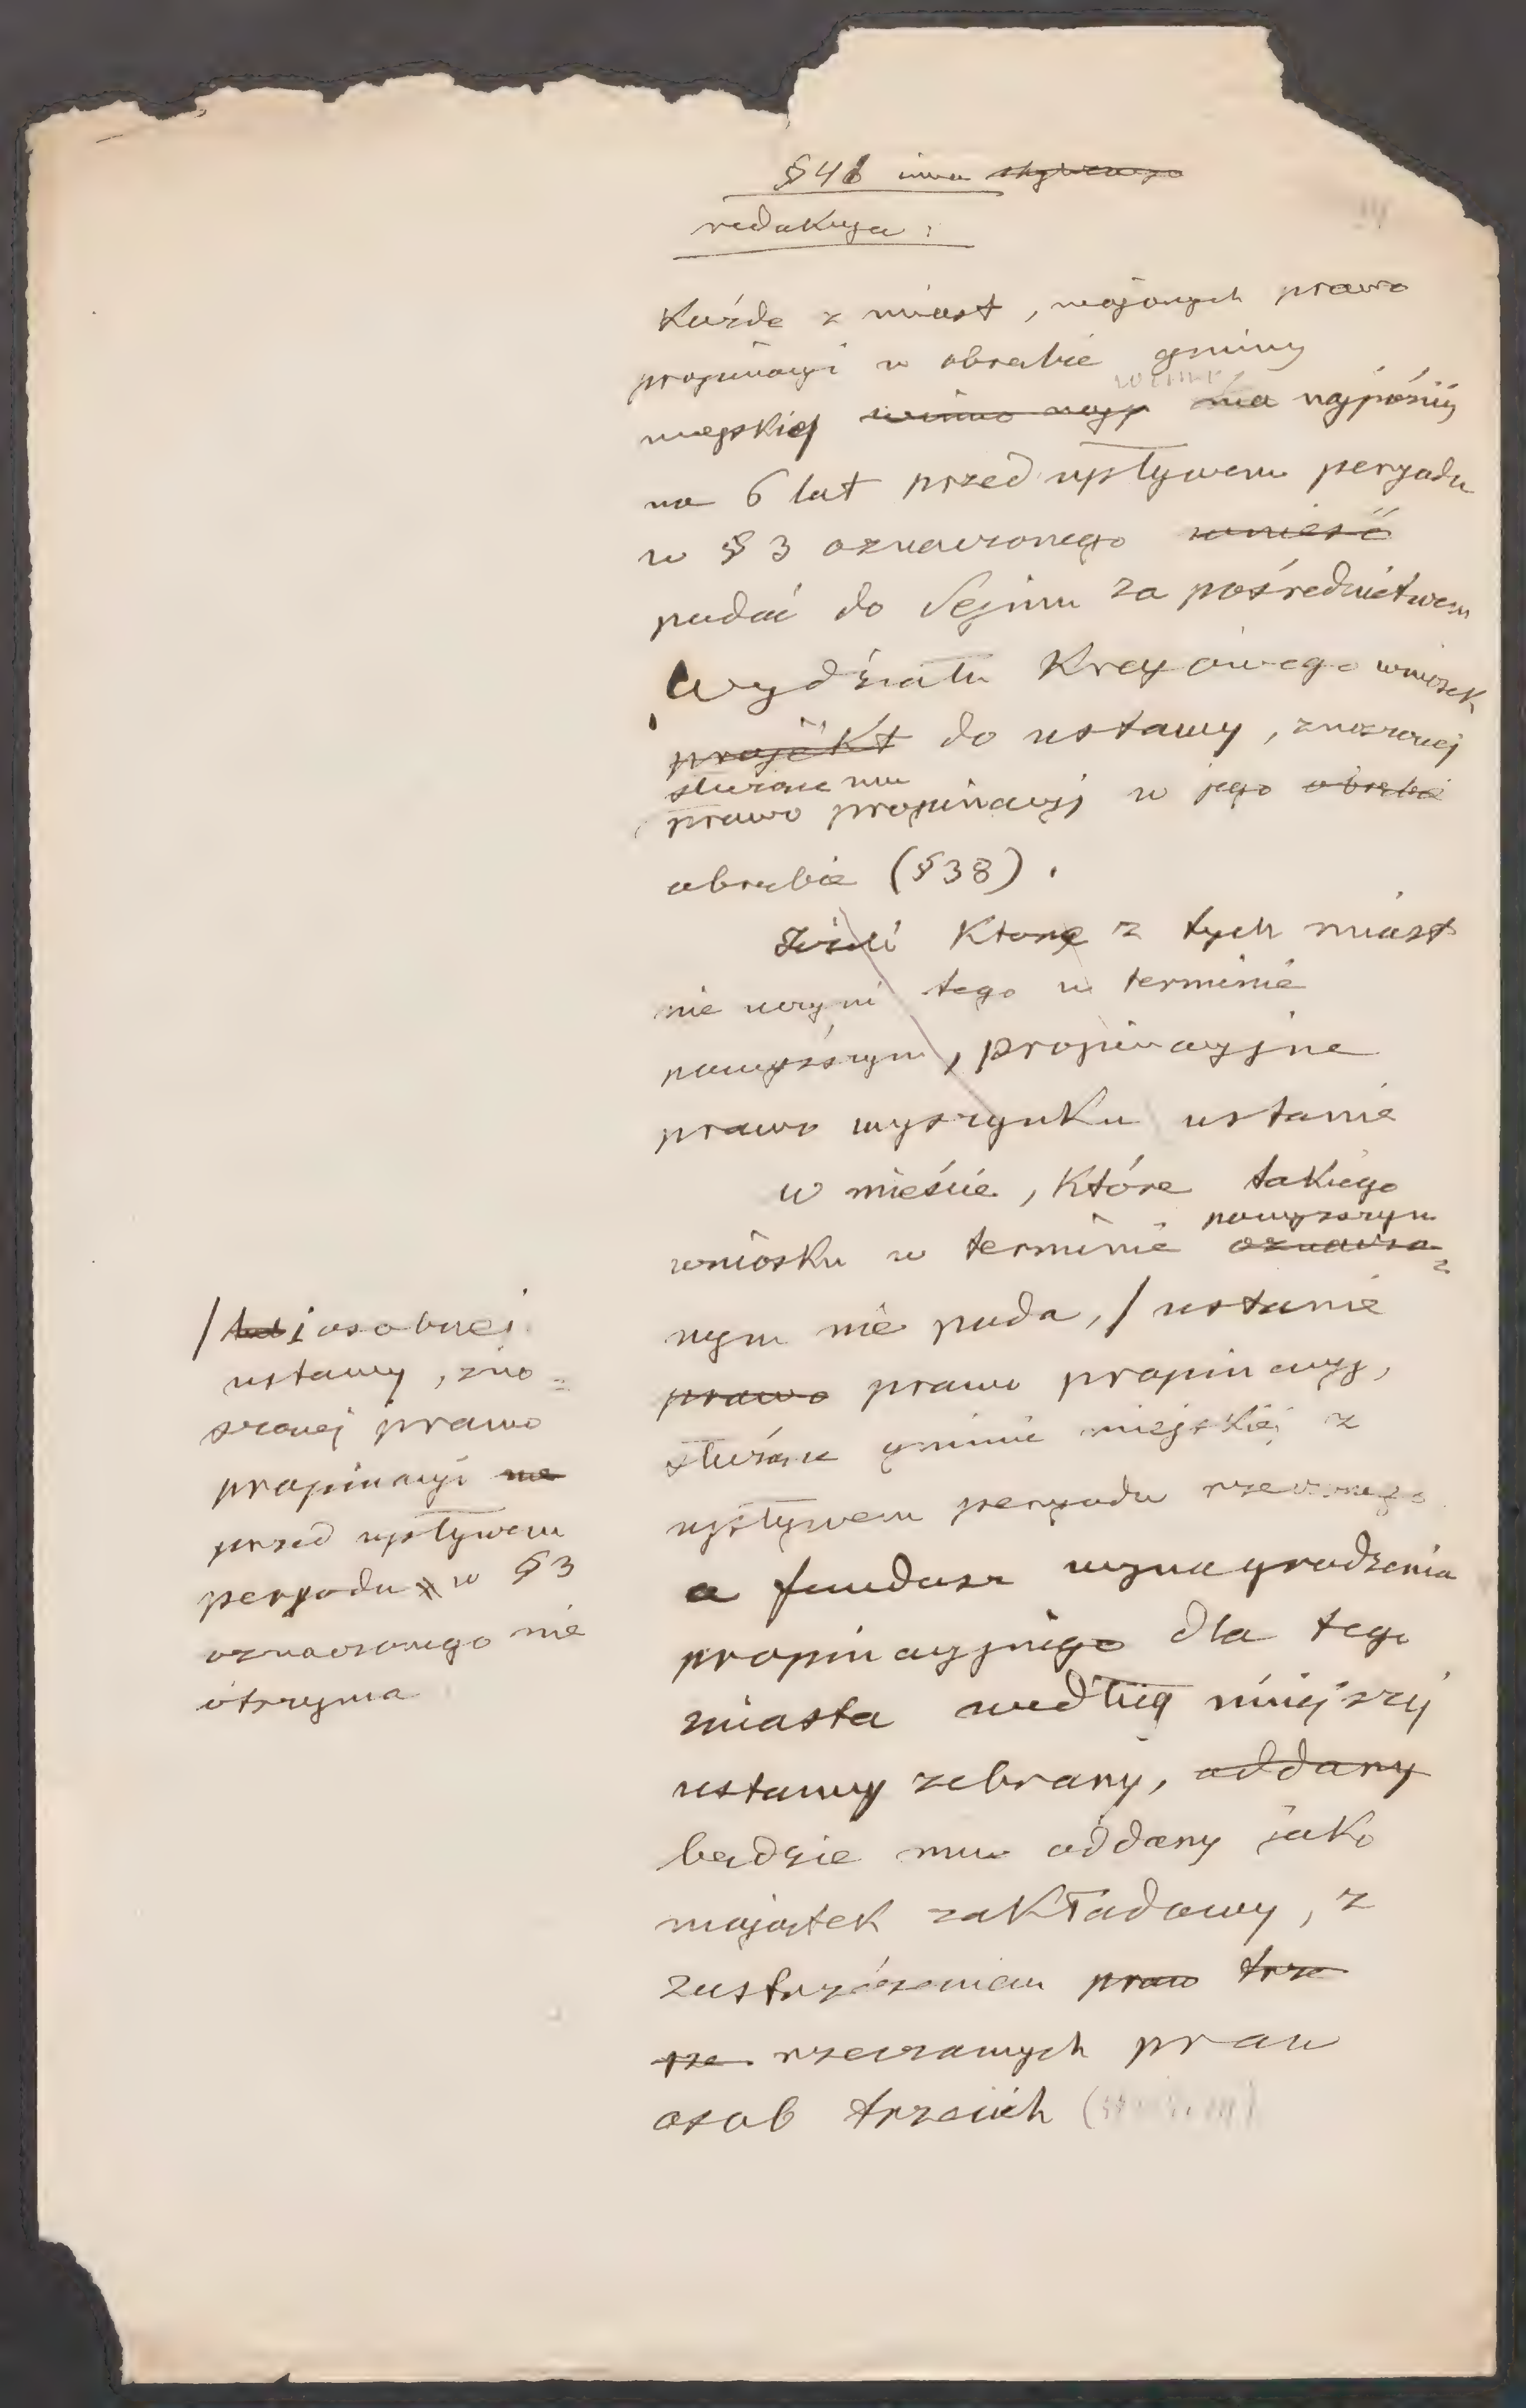 § 41 inna
redakcya :
Każde z miast, mających prawo
propinacyi w obrębie gminy
winno
miejskiej winno najp ma najpóźniej
na 6 lat przed upływem peryodu
w § 3 oznaczonego wnieść
podać do Sejmu za pośrednictwem
Wydziału Krajowego wniosek
projekt do ustawy, znoszącej
służące mu
prawo propinacyj w jego obrębie
obrębie (§ 38) .
Jeżeli które z tych miast
nie uczyni tego w terminie
powyższym, propinacyjne
prawo wyszynku ustanie
W mieście, które takiego
powyższym
wniosku w terminie oznaczo=
nym nie poda, / ustanie
prawo prawo propinacyj,
służące gminie miejskiej z
upływem peryodu rzeczonego
a fundusz wynagrodzenia
propinacyjnego dla tego
miasta według niniejszej
ustawy zebrany, oddany
będzie mu oddany jako
majątek zakładowy, z
zastrzeżeniem praw trze
rzeczowych praw
osób trzecich
/ i osobnej
ustawy, zno=
szącej prawo
propinacyi na
przed upływem
peryodu w § 3
oznaczonego nie
otrzyma